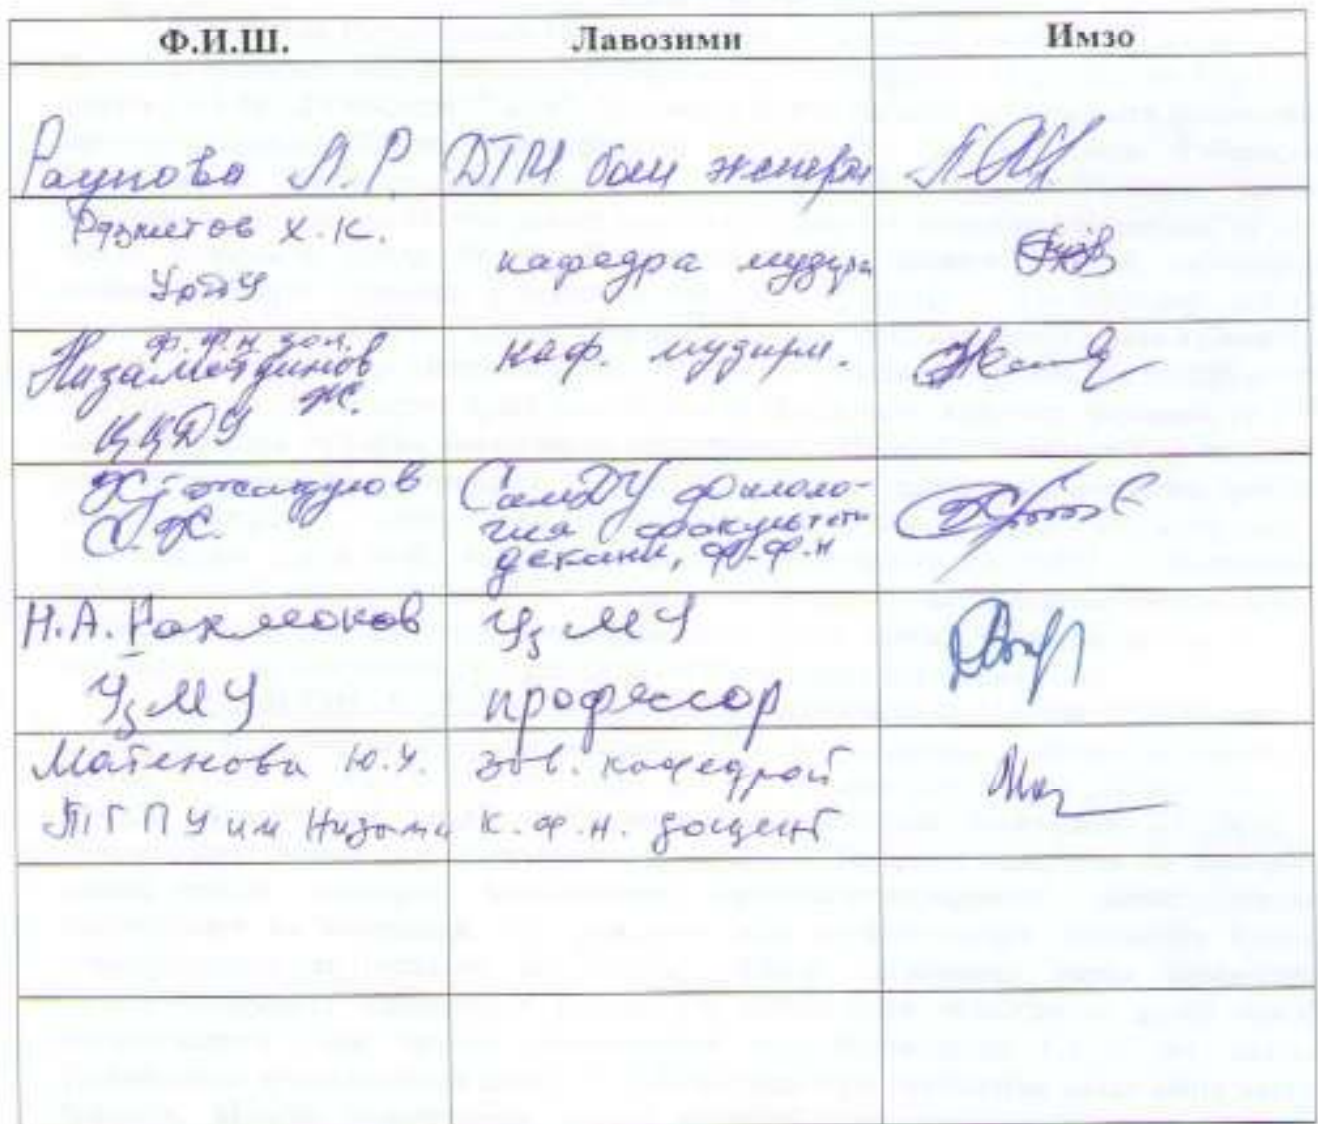 Ф.И.Ш. Лавозими Имзо
Раупова Л.Р ДТМ бош эксперти
Рузметов Х.К.
УрДУ
кафедра мудири
ф.ф.н. доц.
Низаметдинов
Ж.
ҚҚДУ
каф. мудири.
С.Ж.
СамДУ Филоло-
гия факультети
декани, ф.ф.н
Н.А. Рахмонов
ЎзМУ
ЎзМУ
профессор
Матенова Ю.У.
ТГПУ им Низами
Зав. кафедрой
к.ф.н. доцент